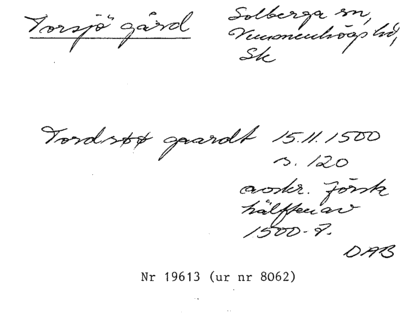 Torsjö gård
Solberga sn,
Vemmenhögs hd,
Sk
Tordsøø gaardt 15.11.1500
s. 120
avskr. förste
hälften av
1500-t.
DAB
Nr 19613 (ur nr 8062)